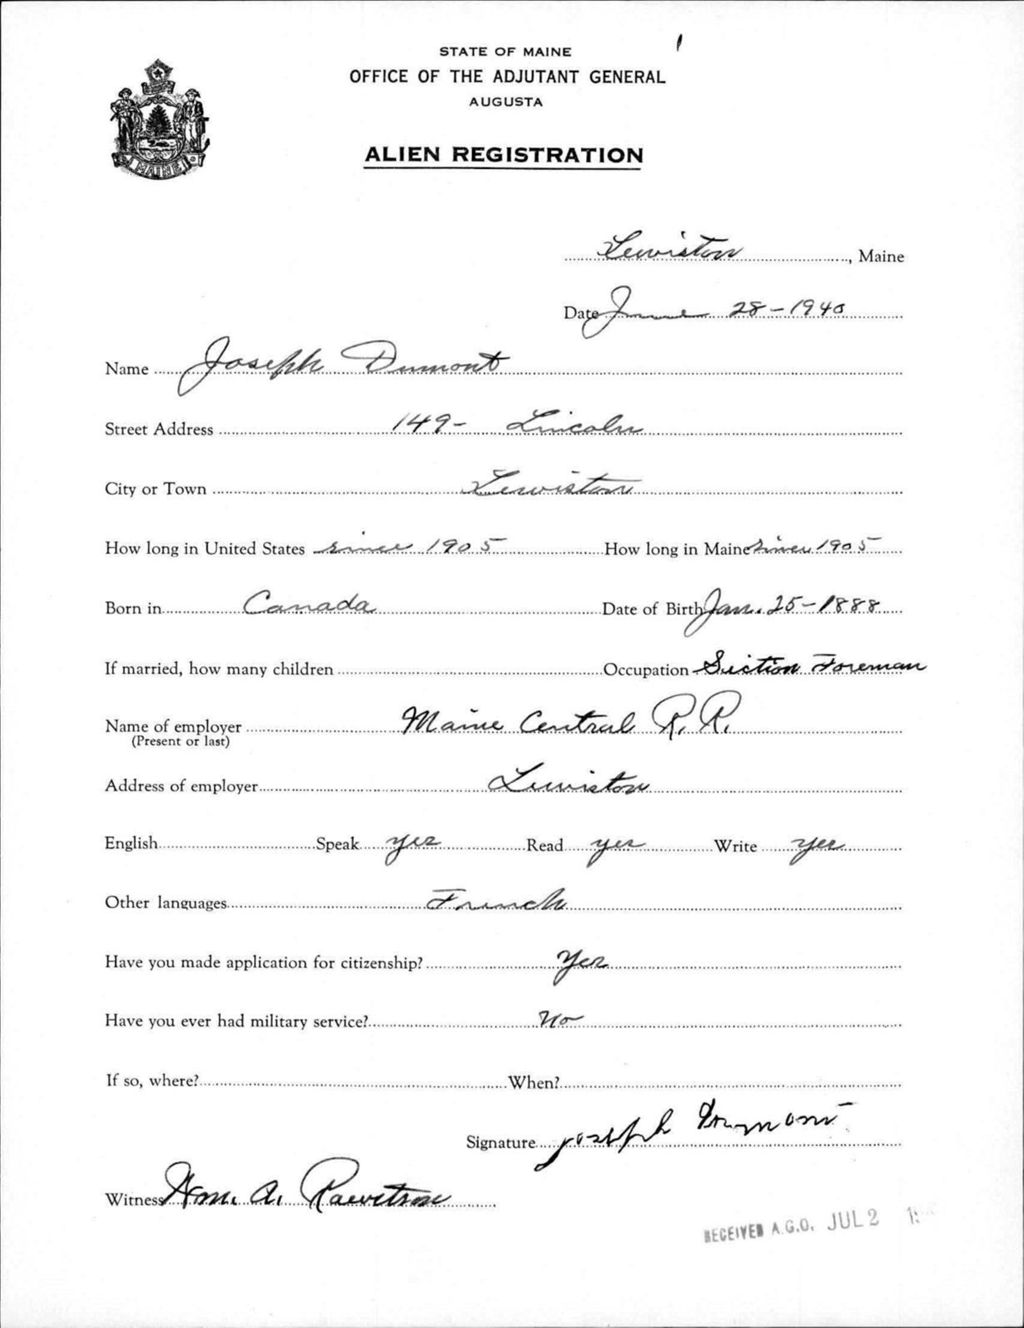 STATE OF MAINE
OFFICE OF THE ADJUTANT GENERAL
AUGUSTA
ALIEN REGISTRATION
MAINE
Lewiston, Maine
Date June 28-1940
Name Joseph Dumont
Street Address 149- Lincoln
City or Town Lewiston
How long in United States since 1905 How long in Maine since 1905
Born in Canada Date of Birth Jan. 25-1888
If married, how many children Occupation Section Foreman
Name of employer Maine Central R.R.
(Present or last)
Address of employer Lewiston
English Speak yes Read yes Write yes
Other languages French
Have you made application for citizenship? Yes
Have you ever had military service? No
If so, where? When?
Signature Joseph Dumont
Witness Wm. A.
RECEIVED A.G.O. JUL 2